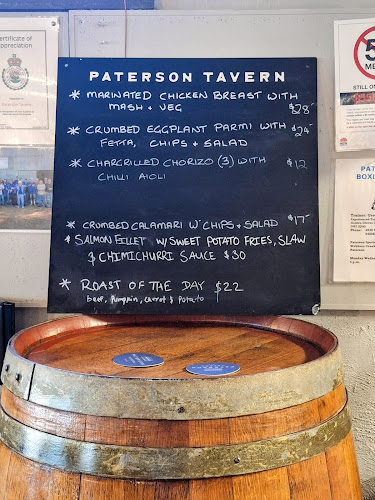 Certificate of
Appreciation
PATERSON TAVERN
* MARINATED CHICKEN BREAST WITH
MASH + VEG $28
* CRUMBED EGGPLANT PARMI WITH $24
FETTA, CHIPS & SALAD
* CHARGRILLED CHORIZO (3) WITH $12
CHILLI AIOLI
* CRUMBED CALAMARI W' CHIPS & SALAD $17
* SALMON FILLET W/ SWEET POTATO FRIES, SLAW
& CHIMICHURRI SAUCE $30
* ROAST OF THE DAY $22
beef, pumpkin, carrot & potato
5
ME
STILL O
PAT
BOXI